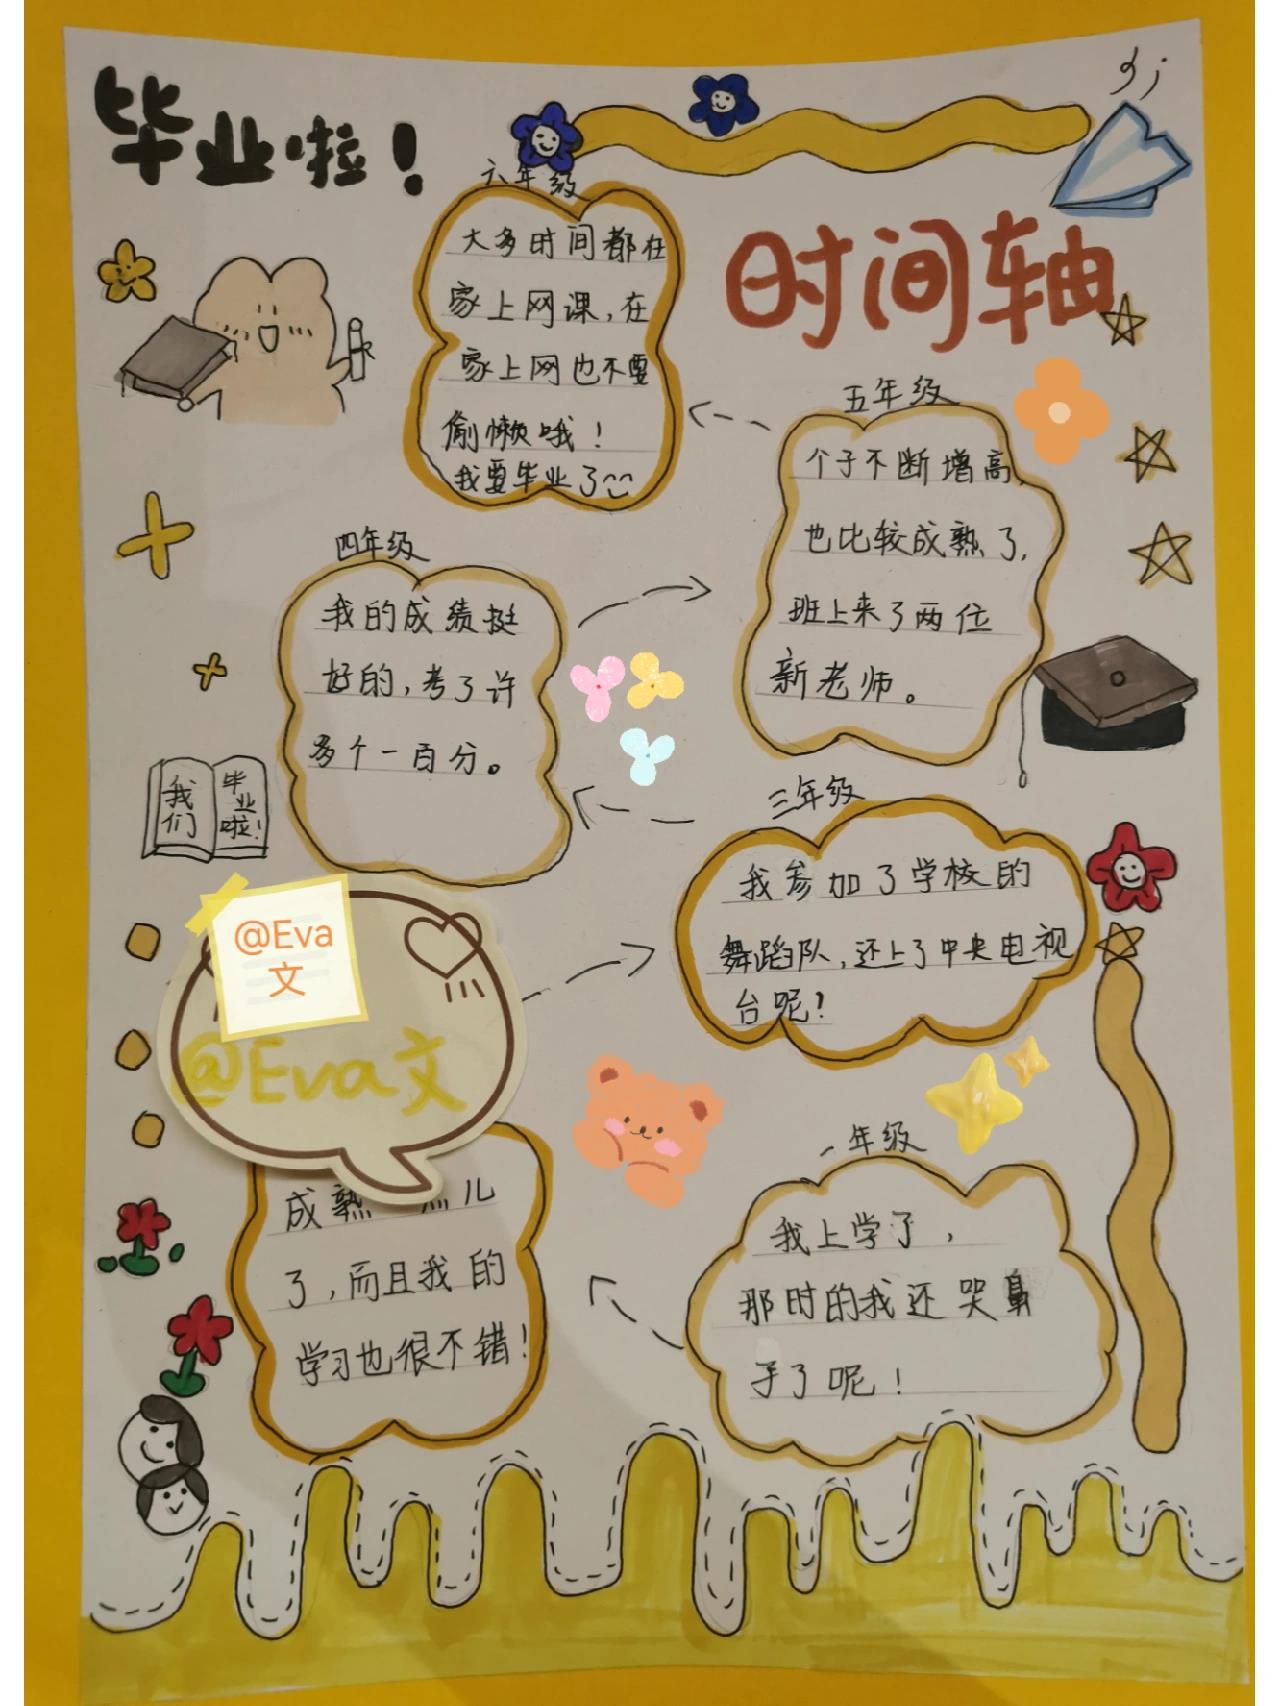 毕业啦！
六年级
大多时间都在
家上网课，在
家上网也不要
偷懒哦！
我要毕业了
时间轴
五年级
个子不断增高，
也比较成熟了，
班上来了两位
新老师。
四年级
我的成绩挺
好的，考了许
多个一百分。
我们
毕业啦！
三年级
我参加了学校的
舞蹈队，还上了中央电视
台呢？
@Eva
文
@Eva文
成熟 点儿
了，而且我的
学习也很不错！
一年级
我上学了，
那时的我还哭鼻
子了呢！